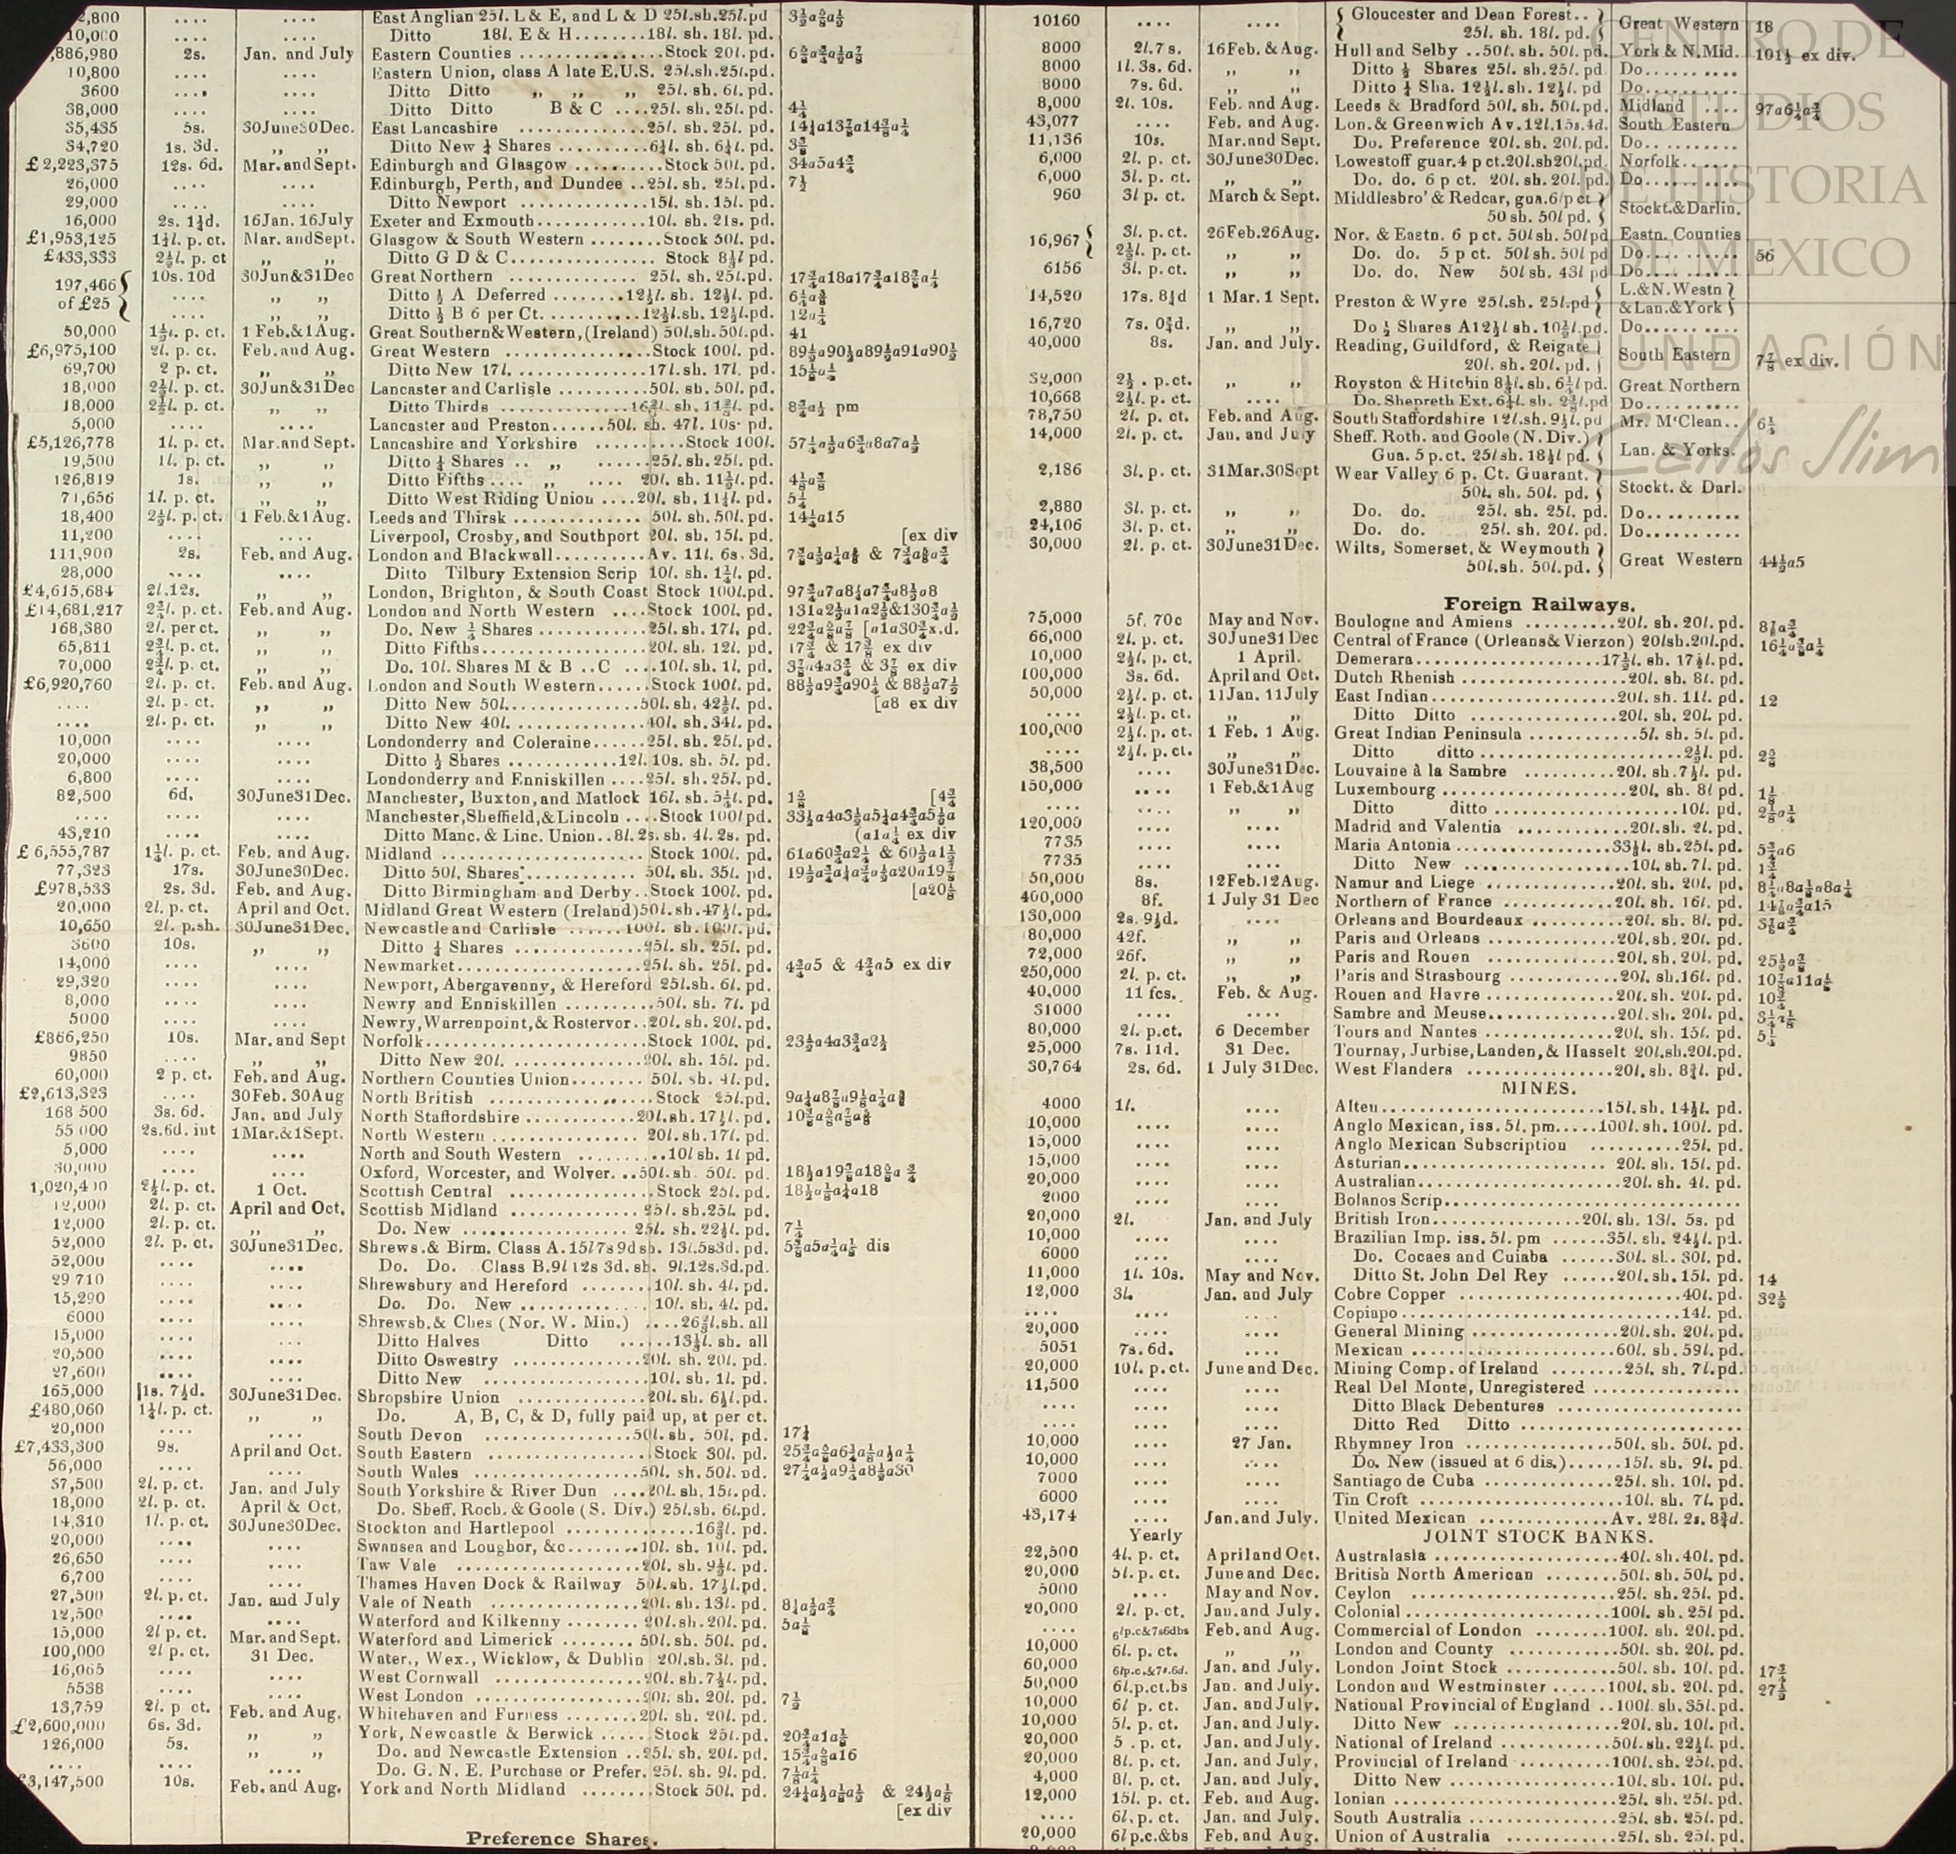 2,800 .... .... East Anglian 25l. L & E, and L & D 25l.sh.25l.pd 3½a⅝a½
10,000 .... .... Ditto 18l. E & H........18l. sh. 18l. pd.
,886,980 2s. Jan. and July Eastern Counties ..............Stock 20l. pd.
10,800 .... .... Eastern Union, class A late E.U.S. 25l.sh.25l.pd.
3600 .... .... Ditto Ditto „ „ „ 25l. sh. 6l. pd.
38,000 .... .... Ditto Ditto B & C ....25l. sh. 25l. pd. 4¼
35,435 5s. 30June30Dec. East Lancashire ..............25l. sh. 25l. pd.
34,720 1s. 3d. „ „ Ditto New ¼ Shares ........6¼l. sh. 6¼l. pd. 3⅜
£2,223,375 12s. 6d. Mar.andSept. Edinburgh and Glasgow ..........Stock 50l. pd. 34a5a4¾
26,000 .... .... Edinburgh, Perth, and Dundee ..25l. sh. 25l. pd. 7½
29,000 .... .... Ditto Newport ............15l. sh. 15l. pd.
16,000 2s. 1¼d. 16Jan. 16July Exeter and Exmouth............10l. sh. 21s. pd.
£1,953,125 1¼l. p. ct. Mar. andSept. Glasgow & South Western ........Stock 50l. pd.
£433,333 2½l. p. ct „ „ Ditto G D & C..............Stock 8⅓l pd
197,466 of £25 10s. 10d 30Jun&31Dec Great Northern ..............25l. sh. 25l.pd. 17¾a18a17¾a18⅜a¼
.... „ „ Ditto ½ A Deferred ........12½l. sh. 12½l. pd. 6¼a⅜
.... „ „ Ditto ½ B 6 per Ct. ..........12½l.sh.12½l. pd. 12a¼
50,000 1½l. p. ct. 1 Feb.&1Aug. Great Southern&Western,(Ireland) 50l.sh.50l.pd. 41
£6,975,100 2l. p. ct. Feb.and Aug. Great Western ................Stock 100l. pd. 89½a90½a89½a91a90½
69,700 2 p. ct. „ „ Ditto New 17l...............17l.sh. 17l. pd. 15⅛a¼
18,000 2½l. p. ct. 30Jun&31Dec Lancaster and Carlisle ..........50l. sh. 50l. pd.
18,000 2½l. p. ct. „ „ Ditto Thirds ............16⅔l. sh. 11⅔l. pd. 8¾a½ pm
5,000 .... .... Lancaster and Preston......50l. sh. 47l. 10s. pd.
£5,126,778 1l. p. ct. Mar.and Sept. Lancashire and Yorkshire ..........Stock 100l. 57¼a½a6¾a8a7a½
19,500 1l. p. ct. „ „ Ditto ¼ Shares .. „ ......25l. sh. 25l. pd.
126,819 1s. „ „ Ditto Fifths.... „ .... 20l. sh. 11½l. pd. 4⅛a⅜
71,656 1l. p. ct. „ „ Ditto West Riding Union ....20l. sh. 11¼l. pd. 5¼
18,400 2½l. p. ct. 1 Feb.&1Aug. Leeds and Thirsk .............. 50l. sh. 50l. pd. 14¼a15
11,200 .... .... Liverpool, Crosby, and Southport 20l. sh. 15l. pd. [ex div
111,900 2s. Feb. and Aug. London and Blackwall..........Av. 11l. 6s. 3d.
28,000 .... .... Ditto Tilbury Extension Scrip 10l. sh. 1¼l. pd.
£4,615,684 2l.12s. „ „ London, Brighton, & South Coast Stock 100l.pd. 97¾a7a8¼a7¾a8½a8
£14,681,217 2¾l. p. ct. Feb.and Aug. London and North Western ....Stock 100l. pd. 131a2½a1a2½&130¾a½
168,380 2l. per ct. „ „ Do. New ¼ Shares ............25l. sh. 17l, pd. 22¾a⅝a⅞ [a1a30¾x.d.
65,811 2¾l. p. ct. „ „ Ditto Fifths................20l. sh. 12l. pd. 17¾ & 17⅜ ex div
70,000 2¾l. p. ct. „ „ Do. 10l. Shares M & B ..C ....10l. sh. 1l. pd. 3⅞a4a3¾ & 3⅞ ex div
£6,920,760 2l. p. ct. Feb. and Aug. London and South Western......Stock 100l. pd. 88½a9¾a90¼ & 88½a7½
.... 2l. p. ct. „ „ Ditto New 50l..............50l. sh. 42½l. pd. [a8 ex div
.... 2l. p. ct. „ „ Ditto New 40l..............40l. sh. 34l. pd.
10,000 .... .... Londonderry and Coleraine......25l. sh. 25l. pd.
20,000 .... .... Ditto ½ Shares ............12l. 10s. sh. 5l. pd.
6,800 .... .... Londonderry and Enniskillen ....25l. sh. 25l. pd.
82,500 6d. 30June31Dec. Manchester, Buxton, and Matlock 16l. sh. 5¼l. pd. 1⅝ [4¾
.... .... .... Manchester,Sheffield,&Lincoln ....Stock 100l pd. 33½a4a3½a5¼a4¾a5½a
43,210 .... .... Ditto Manc. & Linc. Union..8l. 2s. sh. 4l. 2s. pd. (a1a¼ ex div
£6,555,787 1¼l. p. ct. Feb. and Aug. Midland ...................... Stock 100l. pd. 61a60¾a2¼ & 60½a1½
77,323 17s. 30June30Dec. Ditto 50l. Shares..............50l. sh. 35l. pd.
£978,533 2s. 3d. Feb. and Aug. Ditto Birmingham and Derby..Stock 100l. pd. [a20⅛
20,000 2l. p. ct. April and Oct. Midland Great Western (Ireland)50l.sh.47½l.pd.
10,650 2l. p.sh. 30June31Dec. Newcastle and Carlisle ......100l. sh. 100l. pd.
3600 10s. „ „ Ditto ¼ Shares ..............25l. sh. 25l. pd.
14,000 .... .... Newmarket....................25l. sh. 25l. pd. 4¾a5 & 4¾a5 ex div
29,320 .... .... Newport, Abergavenny, & Hereford 25l.sh. 6l. pd.
8,000 .... .... Newry and Enniskillen ..........50l. sh. 7l. pd
5000 .... .... Newry,Warrenpoint,& Rostervor..20l. sh. 20l. pd
£866,250 10s. Mar. and Sept Norfolk........................Stock 100l. pd. 23½a4a3¾a2½
9850 .... „ „ Ditto New 20l. ..............20l. sh. 15l. pd.
60,000 2 p. ct. Feb.and Aug. Northern Counties Union........ 50l. sh. 4l. pd.
£2,613,323 .... 30Feb. 30Aug North British ................Stock 25l.pd.
168 500 3s. 6d. Jan. and July North Staffordshire ............20l.sh. 17½l. pd.
55 000 2s.6d. int 1Mar.&1Sept. North Western ................20l. sh.17l. pd.
5,000 .... .... North and South Western ..........10l sh. 1l pd
30,000 .... .... Oxford, Worcester, and Wolver. ..50l. sh. 50l. pd.
1,020,400 2½l. p. ct. 1 Oct. Scottish Central ................Stock 25l. pd. 18½a⅛a¼a18
12,000 2l. p. ct. April and Oct, Scottish Midland ..............25l. sh.25l. pd.
12,000 2l. p. ct. „ „ Do. New ....................25l. sh. 22½l. pd. 7¼
52,000 2l. p. ct. 30June31Dec. Shrews.& Birm. Class A. 15l7s9d sh. 13l.5s3d.pd. 5⅜a5a¼a⅛ dis
52,000 .... .... Do. Do. Class B.9l 12s 3d. sh. 9l.12s.3d.pd.
29 710 .... .... Shrewsbury and Hereford ........10l. sh. 4l. pd.
15,290 .... .... Do. Do. New ................10l. sh. 4l. pd.
6000 .... .... Shrewsb.& Ches (Nor. W. Min.) ....26⅔l.sh. all
15,000 .... .... Ditto Halves Ditto ......13⅓l. sh. all
20,500 .... .... Ditto Oswestry ..............20l. sh. 20l. pd.
27,600 .... .... Ditto New ..................10l. sh. 1l. pd.
165,000 1s. 7½d. 30June31Dec. Shropshire Union ..............20l. sh. 6½l. pd.
£480,060 1¼l. p. ct. „ „ Do. A, B, C, & D, fully paid up, at per ct.
20,000 .... .... South Devon ..................50l. sh. 50l. pd. 17¼
£7,433,300 9s. April and Oct. South Eastern ..................Stock 30l. pd. 25¾a⅝a6¼a⅛a½a¼
56,000 .... .... South Wales ..................50l. sh. 50l. pd. 27¼a½a9¼a8½a30
37,500 2l. p. ct. Jan. and July South Yorkshire & River Dun ....20l. sh. 15l. pd.
18,000 2l. p. ct. April & Oct. Do. Sheff. Roch. & Goole (S. Div.) 25l.sh. 6l.pd.
14,310 1l. p. ct. 30June30Dec. Stockton and Hartlepool ..............16⅔l. pd.
20,000 .... .... Swansea and Loughor, &c........10l. sh. 10l. pd.
26,650 .... .... Taw Vale ....................20l. sh. 9½l. pd.
6,700 .... .... Thames Haven Dock & Railway 50l.sh. 17½l.pd.
27,500 2l. p. ct. Jan. and July Vale of Neath ................20l. sh. 13l. pd. 8¼a½a¾
12,500 .... .... Waterford and Kilkenny ........20l.sh.20l. pd. 5a⅛
15,000 2l p. ct. Mar. and Sept. Waterford and Limerick ........50l. sh. 50l. pd.
100,000 2l p. ct. 31 Dec. Water., Wex., Wicklow, & Dublin 20l.sh.3l. pd.
16,065 .... .... West Cornwall ................20l. sh.7½l. pd.
5538 .... .... West London ..................20l. sh. 20l. pd. 7½
13,759 2l. p ct. Feb. and Aug, Whitehaven and Furness ........20l. sh. 20l. pd.
£2,600,000 6s. 3d. „ „ York, Newcastle & Berwick ......Stock 25l. pd. 20¾a1a⅛
126,000 5s. „ „ Do. and Newcastle Extension ..25l. sh. 20l. pd. 15¾a⅝a16
.... .... .... Do. G. N. E. Purchase or Prefer. 25l. sh. 9l. pd. 7⅛a¼
£3,147,500 10s. Feb. and Aug, York and North Midland ........Stock 50l. pd. 24¼a½a⅛a½ & 24½a⅛
[ex div
Preference Shares.
10160 .... .... Gloucester and Dean Forest.. 25l. sh. 18l. pd. Great Western 18
8000 2l.7s. 16Feb.&Aug. Hull and Selby ..50l. sh. 50l. pd. York & N.Mid. 101½ ex div.
8000 1l. 3s. 6d. „ „ Ditto ½ Shares 25l. sh. 25l. pd Do..........
8000 7s. 6d. „ „ Ditto ¼ Sha. 12½l.sh. 12½l. pd Do..........
8,000 2l. 10s. Feb. and Aug. Leeds & Bradford 50l. sh. 50l. pd. Midland .... 97a6¼a¾
43,077 .... Feb. and Aug. Lon.& Greenwich Av.12l.15s.4d. South Eastern
11,136 10s. Mar.and Sept. Do. Preference 20l. sh. 20l. pd. Do..........
6,000 2l. p. ct. 30June30Dec. Lowestoff guar.4 p ct.20l.sh20l.pd. Norfolk......
6,000 3l. p. ct. „ „ Do. do. 6 p ct. 20l. sh. 20l. pd. Do..........
960 3l p. ct. March & Sept. Middlesbro' & Redcar, gua.6l p ct 50 sh. 50l pd. Stockt.&Darlin.
16,967 3l. p. ct. 26Feb.26Aug. Nor. & Eastn. 6 p ct. 50l sh. 50l pd Eastn. Counties
2½l. p. ct. „ „ Do. do. 5 p ct. 50l sh. 50l pd Do.......... 56
6156 3l. p. ct. „ „ Do. do. New 50l sh. 43l pd Do..........
14,520 17s. 8½d 1 Mar. 1 Sept. Preston & Wyre 25l.sh. 25l.pd L.&N.Westn & Lan.&York
16,720 7s. 0¾d. „ „ Do ½ Shares A12½l sh. 10½l.pd. Do..........
40,000 8s. Jan. and July. Reading, Guildford, & Reigate 20l. sh. 20l. pd. South Eastern 7⅞ ex div.
32,000 2½ . p.ct. „ „ Royston & Hitchin 8⅓l.sh. 6¼l pd. Great Northern
10,668 2½l. p. ct. .... Do. Shepreth Ext. 6¼l. sh. 2⅜l.pd Do..........
78,750 2l. p. ct. Feb. and Aug. South Staffordshire 12l.sh. 9½l. pd Mr. M'Clean.. 6¼
14,000 2l. p. ct. Jan. and July Sheff. Roth. and Goole (N. Div.) Gua. 5 p.ct. 25l sh. 18½l pd. Lan. & Yorks.
2,186 3l. p. ct. 31Mar.30Sept Wear Valley 6 p. Ct. Guarant. 50l. sh. 50l. pd. Stockt. & Darl.
2,880 3l. p. ct. „ „ Do. do. 25l. sh. 25l. pd. Do..........
24,106 3l. p. ct. „ „ Do. do. 25l. sh. 20l. pd. Do..........
30,000 2l. p. ct. 30June31Dec. Wilts, Somerset, & Weymouth 50l.sh. 50l.pd. Great Western 44½a5
Foreign Railways.
75,000 5f. 70c May and Nov. Boulogne and Amiens ..........20l. sh. 20l. pd. 8⅞a¾
66,000 2l. p. ct. 30June31Dec Central of France (Orleans& Vierzon) 20lsh.20l.pd. 16¼a⅜a¼
10,000 2½l. p. ct. 1 April. Demerara..................17½l. sh. 17½l. pd.
100,000 3s. 6d. April and Oct. Dutch Rhenish ................20l. sh. 8l. pd.
50,000 2½l. p. ct. 11Jan. 11July East Indian..................20l. sh. 11l. pd. 12
.... 2½l. p. ct. „ „ Ditto Ditto ..............20l. sh. 20l. pd.
100,000 2½l. p. ct. 1 Feb. 1 Aug. Great Indian Peninsula ..........5l. sh. 5l. pd.
.... 2½l. p. ct. „ „ Ditto ditto................2½l. pd. 2⅝
38,500 .... 30June31Dec. Louvaine à la Sambre ..........20l. sh.7½l. pd.
150,000 .... 1 Feb.&1Aug Luxembourg ..................20l. sh. 8l pd 1⅛
.... .... „ „ Ditto ditto ................10l. pd. 2⅛a¼
120,000 .... .... Madrid and Valentia ............20l.sh. 2l. pd.
7735 .... .... Maria Antonia................33⅓l.sh. 25l. pd. 5¾a6
7735 .... .... Ditto New ................10l. sh. 7l. pd. 1¾
50,000 8s. 12Feb.12Aug. Namur and Liege ..............20l. sh. 20l. pd. 8¼a8a⅛a8a¼
400,000 8f. 1 July 31 Dec Northern of France ............20l. sh. 16l. pd. 14⅞a¾a15
130,000 2s. 9½d. .... Orleans and Bourdeaux ..........20l. sh. 8l. pd. 3⅞a¾
80,000 42f. „ „ Paris and Orleans ..............20l. sh. 20l. pd.
72,000 26f. „ „ Paris and Rouen ..............20l. sh. 20l. pd. 25½a⅜
250,000 2l. p. ct. „ „ Paris and Strasbourg ............20l. sh.16l. pd. 10⅞a11a⅛
40,000 11 fcs. Feb. & Aug. Rouen and Havre ..............20l. sh. 20l. pd. 10¾
31000 .... .... Sambre and Meuse..............20l. sh. 20l. pd.
80,000 2l. p.ct. 6 December Tours and Nantes ..............20l. sh. 15l. pd. 5¼
25,000 7s. 11d. 31 Dec. Tournay,Jurbise,Landen,& Hasselt 20l.sh.20l.pd.
30,764 2s. 6d. 1 July 31Dec. West Flanders ................20l. sh. 8¾l. pd.
MINES.
4000 1l. .... Alten........................15l. sh. 14½l. pd.
10,000 .... .... Anglo Mexican, iss. 5l. pm.....100l. sh. 100l. pd.
15,000 .... .... Anglo Mexican Subscription ..........25l. pd.
15,000 .... .... Asturian......................20l. sh. 15l. pd.
20,000 .... .... Australian....................20l. sh. 4l. pd.
2000 .... .... Bolanos Scrip..............................
20,000 2l. Jan. and July British Iron................20l. sh. 13l. 5s. pd
10,000 .... .... Brazilian Imp. iss. 5l. pm ......35l. sh. 24½l. pd.
6000 .... .... Do. Cocaes and Cuiaba ......30l. sh. 30l. pd.
11,000 1l. 10s. May and Nov. Ditto St. John Del Rey ......20l. sh. 15l. pd. 14
12,000 3l. Jan. and July Cobre Copper ........................40l. pd. 32½
.... .... .... Copiapo..............................14l. pd.
20,000 .... .... General Mining ................20l. sh. 20l. pd.
5051 7s. 6d. .... Mexican ......................60l. sh. 59l. pd.
20,000 10l. p. ct. June and Dec. Mining Comp. of Ireland ........25l. sh. 7l. pd.
11,500 .... .... Real Del Monte, Unregistered ................
.... .... .... Ditto Black Debentures ....................
.... .... .... Ditto Red Ditto ......................
10,000 .... 27 Jan. Rhymney Iron ................50l. sh. 50l. pd.
10,000 .... .... Do. New (issued at 6 dis.)......15l. sh. 9l. pd.
7000 .... .... Santiago de Cuba ..............25l. sh. 10l. pd.
6000 .... .... Tin Croft ......................10l. sh. 7l. pd.
43,174 .... Jan.and July. United Mexican ..............Av. 28l. 2s. 8¾d.
JOINT STOCK BANKS.
Yearly
22,500 4l. p. ct. April and Oct. Australasia ....................40l. sh. 40l. pd.
20,000 5l. p. ct. June and Dec. British North American ........50l. sh. 50l. pd.
5000 .... May and Nov. Ceylon ......................25l. sh. 25l. pd.
20,000 2l. p. ct. Jan. and July. Colonial ....................100l. sh. 25l pd
.... 6l p.c&7s6dbs Feb. and Aug. Commercial of London ........100l. sh. 20l. pd.
10,000 6l. p. ct. „ „ London and County ............50l. sh. 20l. pd.
60,000 6l p.c.&7s.6d. Jan. and July. London Joint Stock ............50l. sh. 10l. pd. 17¾
50,000 6l.p.ct.bs Jan. and July. London and Westminster ......100l. sh. 20l. pd. 27½
10,000 6l p. ct. Jan. and July. National Provincial of England ..100l. sh. 35l. pd.
10,000 5l. p. ct. Jan. and July. Ditto New ..................20l. sh. 10l. pd.
20,000 5 . p. ct. Jan. and July. National of Ireland ............50l. sh. 22½l. pd.
20,000 8l. p. ct. Jan. and July. Provincial of Ireland ..........100l. sh. 25l. pd.
4,000 8l. p. ct. Jan. and July, Ditto New ..................10l. sh. 10l. pd.
12,000 15l. p. ct. Feb. and Aug. Ionian ......................25l. sh. 25l. pd.
.... 6l. p. ct. Jan. and July. South Australia ................25l. sh. 25l. pd.
20,000 6l p.c.&bs Feb. and Aug. Union of Australia ............25l. sh. 25l. pd.
CENTRO DE
ESTUDIOS
DE HISTORIA
DE MEXICO
FUNDACIÓN
Carlos Slim